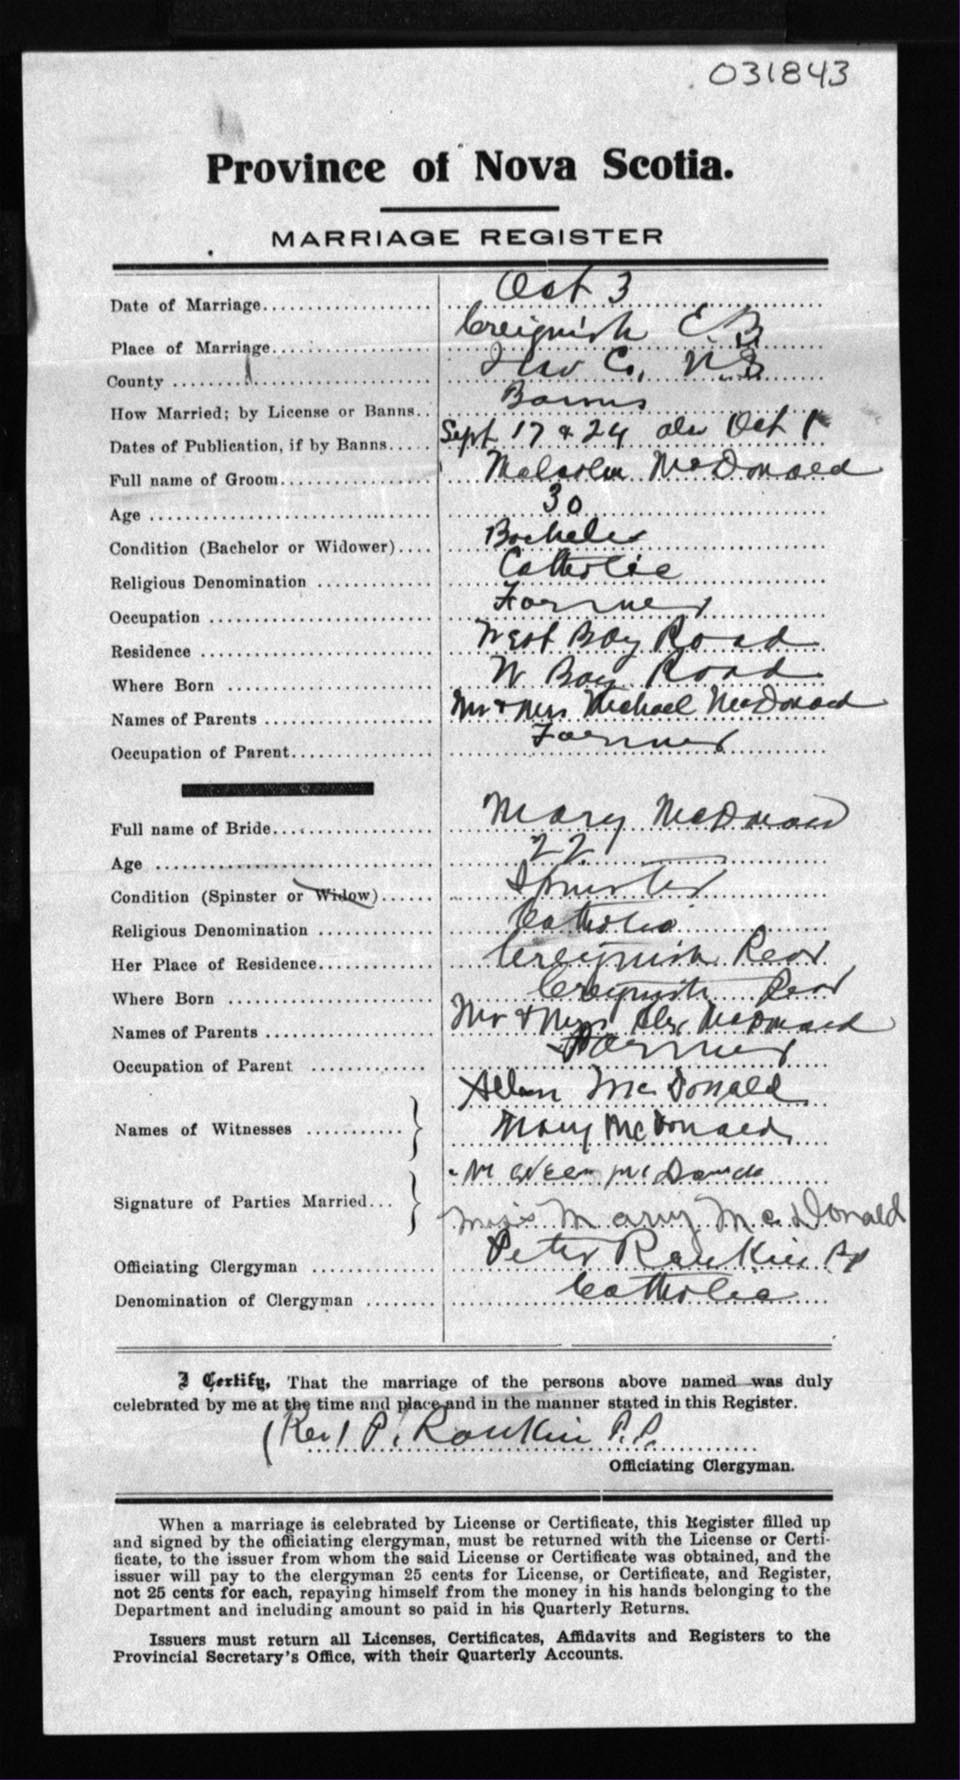 031843
Province of Nova Scotia.
MARRIAGE REGISTER
Date of Marriage.................... Oct 3
Place of Marriage................... Creignish C.B.
County .............................. Inv Co, N.S.
How Married; by License or Banns.. Banns
Dates of Publication, if by Banns..... Sept 17 & 24 als Oct 1
Full name of Groom.................. Malcolm McDonald
Age .................................. 30
Condition (Bachelor or Widower).... Bachelor
Religious Denomination .............. Catholic
Occupation .......................... Farmer
Residence ........................... West Bay Road
Where Born ......................... W Bay Road
Names of Parents ................... Mr & Mrs Michael McDonald
Occupation of Parent................ Farmer
Full name of Bride.................. Mary McDonald
Age .................................. 22
Condition (Spinster or Widow)...... Spinster
Religious Denomination .............. Catholic
Her Place of Residence.............. Creignish Rear
Where Born ......................... Creignish Rear
Names of Parents ................... Mr & Mrs Alex McDonald
Occupation of Parent .............. Farmer
Allan McDonald
Names of Witnesses ............ } Mary McDonald
Signature of Parties Married... }
Miss Mary McDonald
Officiating Clergyman .............. Peter Rankin PP
Denomination of Clergyman ........ Catholic
I Certify, That the marriage of the persons above named was duly
celebrated by me at the time and place and in the manner stated in this Register.
(Rev) P. Rankin P.P.
Officiating Clergyman.
When a marriage is celebrated by License or Certificate, this Register filled up
and signed by the officiating clergyman, must be returned with the License or Certi-
ficate, to the issuer from whom the said License or Certificate was obtained, and the
issuer will pay to the clergyman 25 cents for License, or Certificate, and Register,
not 25 cents for each, repaying himself from the money in his hands belonging to the
Department and including amount so paid in his Quarterly Returns.
Issuers must return all Licenses, Certificates, Affidavits and Registers to the
Provincial Secretary's Office, with their Quarterly Accounts.